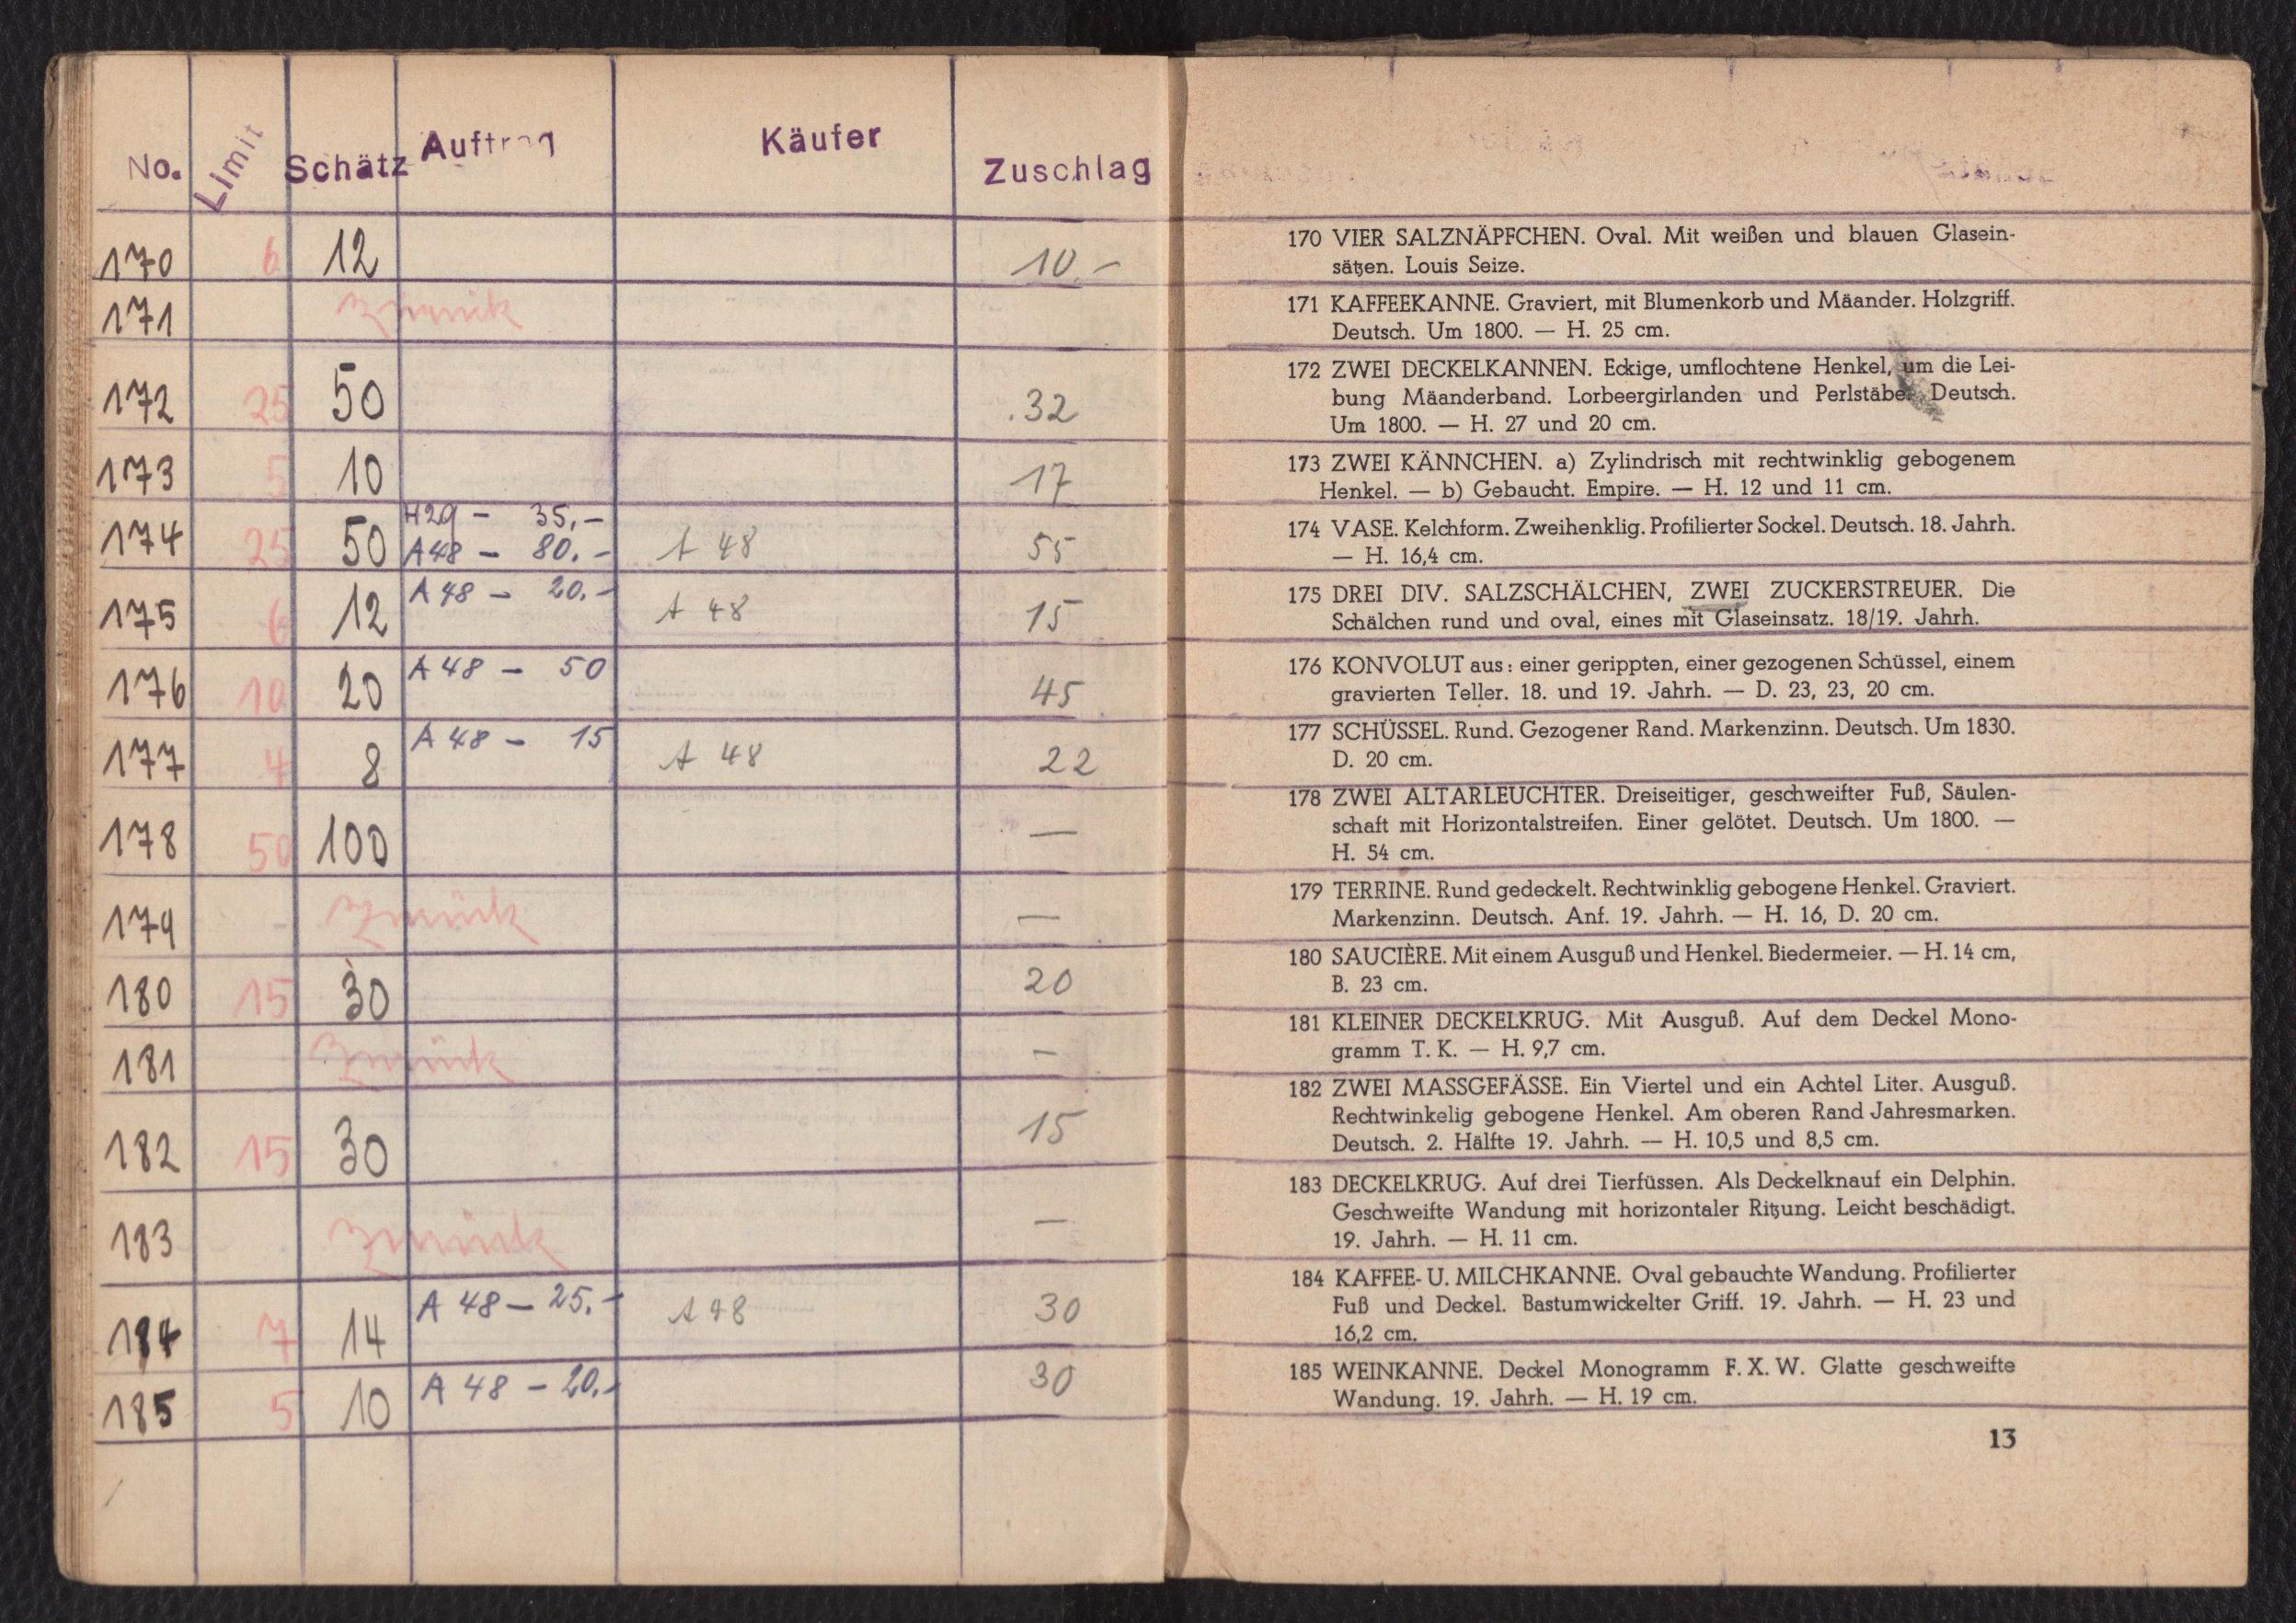 No. Limit Schätz Auftrag Käufer Zuschlag
170 6 12 10.-
171 zurück
172 25 50 32
173 5 10 17
H29 - 35.-
174 25 50 A48 - 80.- A 48 55
175 6 12 A 48 - 20.- A 48 15
176 10 20 A 48 - 50 45
177 4 8 A 48 - 15 A 48 22
178 50 100 —
179 - zurück —
180 15 30 20
181 zurück —
182 15 30 15
183 zurück —
184 7 14 A 48 - 25.- A 48 30
185 5 10 A 48 - 20.- 30
170 VIER SALZNÄPFCHEN. Oval. Mit weißen und blauen Glasein-
sätzen. Louis Seize.
171 KAFFEEKANNE. Graviert, mit Blumenkorb und Mäander. Holzgriff.
Deutsch. Um 1800. — H. 25 cm.
172 ZWEI DECKELKANNEN. Eckige, umflochtene Henkel, um die Lei-
bung Mäanderband. Lorbeergirlanden und Perlstäbe. Deutsch.
Um 1800. — H. 27 und 20 cm.
173 ZWEI KÄNNCHEN. a) Zylindrisch mit rechtwinklig gebogenem
Henkel. — b) Gebaucht. Empire. — H. 12 und 11 cm.
174 VASE. Kelchform. Zweihenklig. Profilierter Sockel. Deutsch. 18. Jahrh.
— H. 16,4 cm.
175 DREI DIV. SALZSCHÄLCHEN, ZWEI ZUCKERSTREUER. Die
Schälchen rund und oval, eines mit Glaseinsatz. 18/19. Jahrh.
176 KONVOLUT aus: einer gerippten, einer gezogenen Schüssel, einem
gravierten Teller. 18. und 19. Jahrh. — D. 23, 23, 20 cm.
177 SCHÜSSEL. Rund. Gezogener Rand. Markenzinn. Deutsch. Um 1830.
D. 20 cm.
178 ZWEI ALTARLEUCHTER. Dreiseitiger, geschweifter Fuß, Säulen-
schaft mit Horizontalstreifen. Einer gelötet. Deutsch. Um 1800. —
H. 54 cm.
179 TERRINE. Rund gedeckelt. Rechtwinklig gebogene Henkel. Graviert.
Markenzinn. Deutsch. Anf. 19. Jahrh. — H. 16, D. 20 cm.
180 SAUCIÈRE. Mit einem Ausguß und Henkel. Biedermeier. — H. 14 cm,
B. 23 cm.
181 KLEINER DECKELKRUG. Mit Ausguß. Auf dem Deckel Mono-
gramm T. K. — H. 9,7 cm.
182 ZWEI MASSGEFÄSSE. Ein Viertel und ein Achtel Liter. Ausguß.
Rechtwinkelig gebogene Henkel. Am oberen Rand Jahresmarken.
Deutsch. 2. Hälfte 19. Jahrh. — H. 10,5 und 8,5 cm.
183 DECKELKRUG. Auf drei Tierfüssen. Als Deckelknauf ein Delphin.
Geschweifte Wandung mit horizontaler Ritzung. Leicht beschädigt.
19. Jahrh. — H. 11 cm.
184 KAFFEE- U. MILCHKANNE. Oval gebauchte Wandung. Profilierter
Fuß und Deckel. Bastumwickelter Griff. 19. Jahrh. — H. 23 und
16,2 cm.
185 WEINKANNE. Deckel Monogramm F. X. W. Glatte geschweifte
Wandung. 19. Jahrh. — H. 19 cm.
13